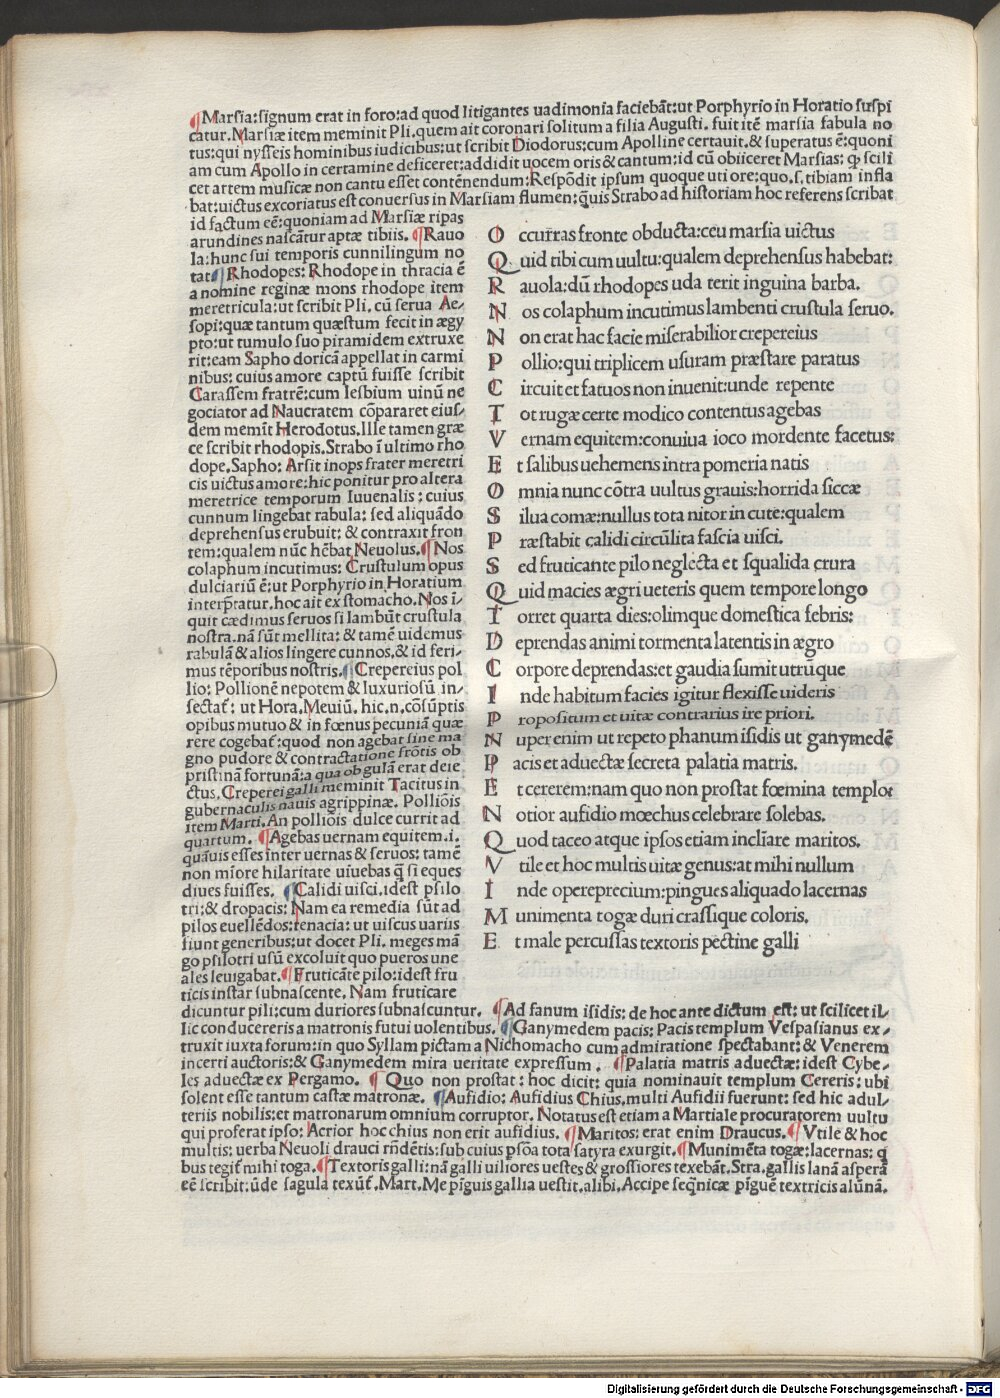 ¶Marsia:signum erat in foro:ad quod litigantes uadimonia faciebāt:ut Porphyrio in Horatio suspi
catur.Marsiæ item meminit Pli.quem ait coronari solitum a filia Augusti.fuit itē marsia fabula no
tus:qui nysseis hominibus iudicibus:ut scribit Diodorus:cum Apolline certauit.& superatus ē:quoni
am cum Apollo in certamine deficeret:addidit uocem oris & cantum:id cū obiiceret Marsias: ꝙ scili
cet artem musicæ non cantu esset contēnendum:Respōdit ipsum quoque uti ore:quo.s.tibiam infla
bat:uictus excoriatus est conuersus in Marsiam flumen:q̄uis Strabo ad historiam hoc referens scribat
id factum eē:quoniam ad Marsiæ ripas
arundines nascātur aptæ tibiis. ¶Rauo
la:hunc sui temporis cunnilingum no
tat¶Rhodopes: Rhodope in thracia ē
a nomine reginæ mons rhodope item
meretricula:ut scribit Pli. cū serua Ae-
sopi:quæ tantum quæstum fecit in ægy
pto:ut tumulo suo piramidem extruxe
rit:eam Sapho doricā appellat in carmi
nibus:cuius amore captū fuisse scribit
Carassem fratrē:cum lesbium uinū ne
gociator ad Naucratem cōpararet eius-
dem memīt Herodotus.Ille tamen græ
ce scribit rhodopis.Strabo ī ultimo rho
dope.Sapho: Arsit inops frater meretri
cis uictus amore:hic ponitur pro altera
meretrice temporum Iuuenalis: cuius
cunnum lingebat rabula: sed aliquādo
deprehensus erubuit: & contraxit fron
tem:qualem nūc hēbat Neuolus.¶Nos
colaphum incutimus: Crustulum opus
dulciariū ē:ut Porphyrio in Horatium
interp̄tatur.hoc ait ex stomacho.Nos ī-
quit cædimus seruos si lambūt crustula
nostra.nā sūt mellita: & tamē uidemus
rabulā & alios lingere cunnos.& id feri-
mus tēporibus nostris.¶Crepereius pol
lio: Pollionē nepotem & luxuriosū in-
sectat̄: ut Hora.Meuiū. hic.n.cōsūptis
opibus mutuo & in fœnus pecuniā quæ
rere cogebat̄:quod non agebat sine ma
gno pudore & contractatione frōtis ob
pristinā fortunā:a qua ob gulā erat deie
ctus.Creperei galli meminit Tacitus in
gubernaculis nauis agrippinæ. Polliōis
item Marti.An polliōis dulce currit ad
quartum. ¶Agebas uernam equitem.i.
quāuis esses inter uernas & seruos: tamē
non mīore hilaritate uiuebas q̄ si eques
diues fuisses. ¶Calidi uisci.idest psilo
tri:& dropacis: Nam ea remedia sūt ad
pilos euellēdos:tenacia: ut uiscus uariis
fiunt generibus:ut docet Pli. meges mā
go psilotri usū excoluit quo pueros une
ales leuigabat.¶Fruticāte pilo:idest fru
ticis instar subnascente. Nam fruticare
O ccurras fronte obducta:ceu marsia uictus
Q uid tibi cum uultu:qualem deprehensus habebat:
R auola:dū rhodopes uda terit inguina barba.
N os colaphum incutimus lambenti crustula seruo.
N on erat hac facie miserabilior crepereius
P ollio:qui triplicem usuram præstare paratus
C ircuit et fatuos non inuenit:unde repente
T ot rugæ certe modico contentus agebas
V ernam equitem:conuiua ioco mordente facetus:
E t salibus uehemens intra pomeria natis
O mnia nunc cōtra uultus grauis:horrida siccæ
S ilua comæ:nullus tota nitor in cute:qualem
P ræstabit calidi circūlita fascia uisci.
S ed fruticante pilo neglecta et squalida crura
Q uid macies ægri ueteris quem tempore longo
T orret quarta dies:olimque domestica febris:
D eprendas animi tormenta latentis in ægro
C orpore deprendas:et gaudia sumit utrūque
I nde habitum facies igitur flexisse uideris
P ropositum et uitæ contrarius ire priori.
N uper enim ut repeto phanum isidis ut ganymedē
P acis et aduectæ secreta palatia matris.
E t cererem:nam quo non prostat fœmina templo:
N otior aufidio mœchus celebrare solebas.
Q uod taceo atque ipsos etiam inclīare maritos.
V tile et hoc multis uitæ genus:at mihi nullum
I nde opereprecium:pingues aliquado lacernas
M unimenta togæ duri crassique coloris.
E t male percussas textoris pectine galli
dicuntur pili:cum duriores subnascuntur. ¶Ad fanum isidis: de hoc ante dictum est: ut scilicet il-
lic conducereris a matronis futui uolentibus. ¶Ganymedem pacis: Pacis templum Vespasianus ex-
truxit iuxta forum:in quo Syllam pictam a Nichomacho cum admiratione spectabant: & Venerem
incerti auctoris:& Ganymedem mira ueritate expressum. ¶Palatia matris aduectæ: idest Cybe-
les aduectæ ex Pergamo. ¶ Quo non prostat: hoc dicit: quia nominauit templum Cereris: ubi
solent esse tantum castæ matronæ. ¶Aufidio: Aufidius Chius.multi Aufidii fuerunt: sed hic adul-
teriis nobilis:et matronarum omnium corruptor. Notatus est etiam a Martiale procuratorem uultu
qui proferat ipso: Acrior hoc chius non erit aufidius. ¶Maritos: erat enim Draucus. ¶Vtile & hoc
multis: uerba Neuoli drauci rn̄dētis:sub cuius psōa tota satyra exurgit. ¶Munimēta togæ:lacernas: q̄
bus tegit̄ mihi toga.¶Textoris galli:nā galli uiliores uestes & grossiores texebāt.Stra.gallis lanā asperā
eē scribit:ūde sagula texūt̄.Mart.Me pīguis gallia uestit.alibi.Accipe seq̄nicæ pīguē textricis alūnā.
Digitalisierung gefördert durch die Deutsche Forschungsgemeinschaft - DFG